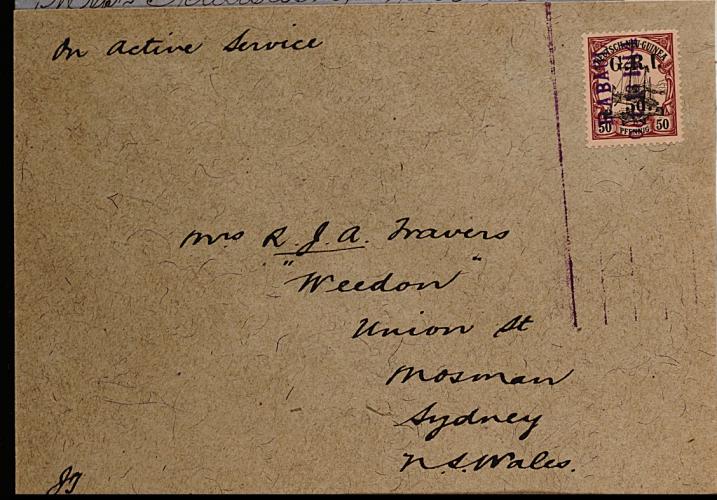 On Active Service
DEUTSCH-NEU-GUINEA
G.R.I.
RABAUL
50 50
PFENNIG
Mrs R. J. A. Travers
"Weedon"
Union St
Mosman
Sydney
N.S. Wales.
JT